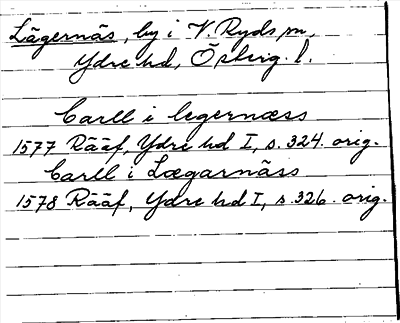 Lägernäs, by i V. Ryds sn,
Ydre hd, Östergl.
Carll i legernæss
1577 Rääf, Ydre hd I, s. 324. orig.
Carll i Lægarnäss
1578 Rääf, Ydre hd I, s. 326. orig.